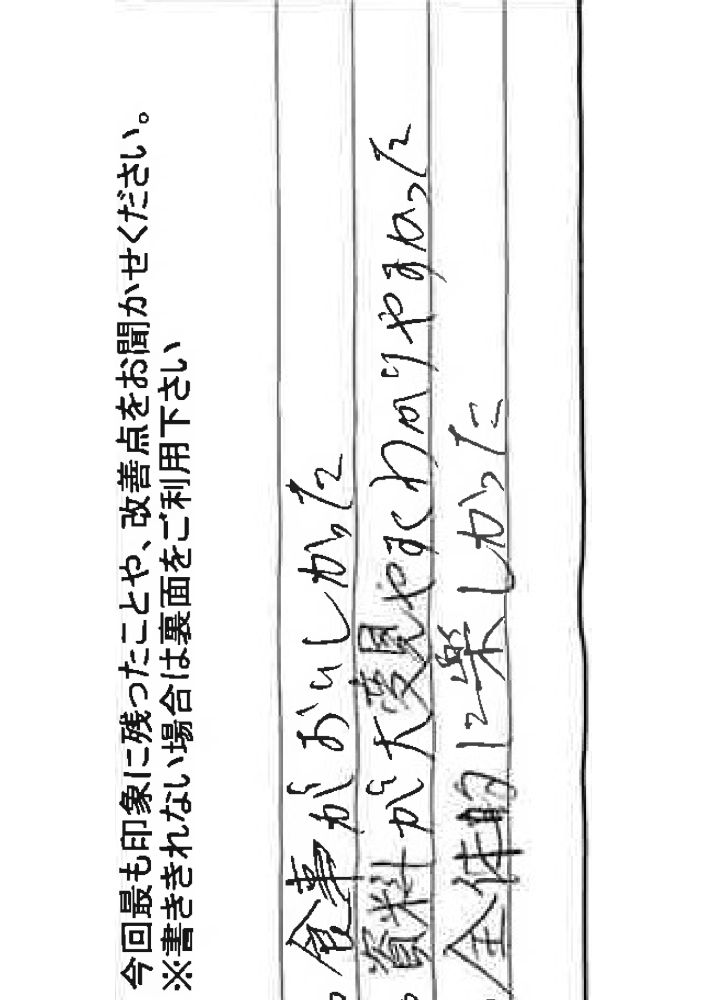 今回最も印象に残ったことや、改善点をお聞かせください。
※書ききれない場合は裏面をご利用下さい
。食事がおいしかった
。資料が大変見やすくわかりやすかった
。全体的に楽しかった